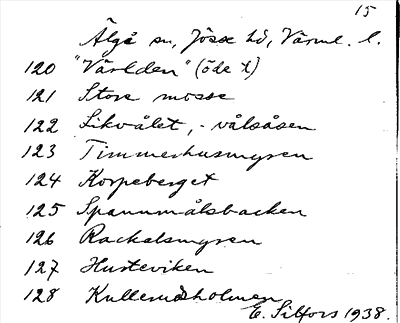 15
Älgå sn, Jösse hd, Värml. l.
120 "Världen" (öde t)
121 Store mosse
122 Likvålet, - vålsåsen
123 Timmerhusmyren
124 Korpeberget
125 Spannmålsbacken
126 Rackalsmyren
127 Husteviken
128 Kullernäsholmen
E. Silfors 1938.